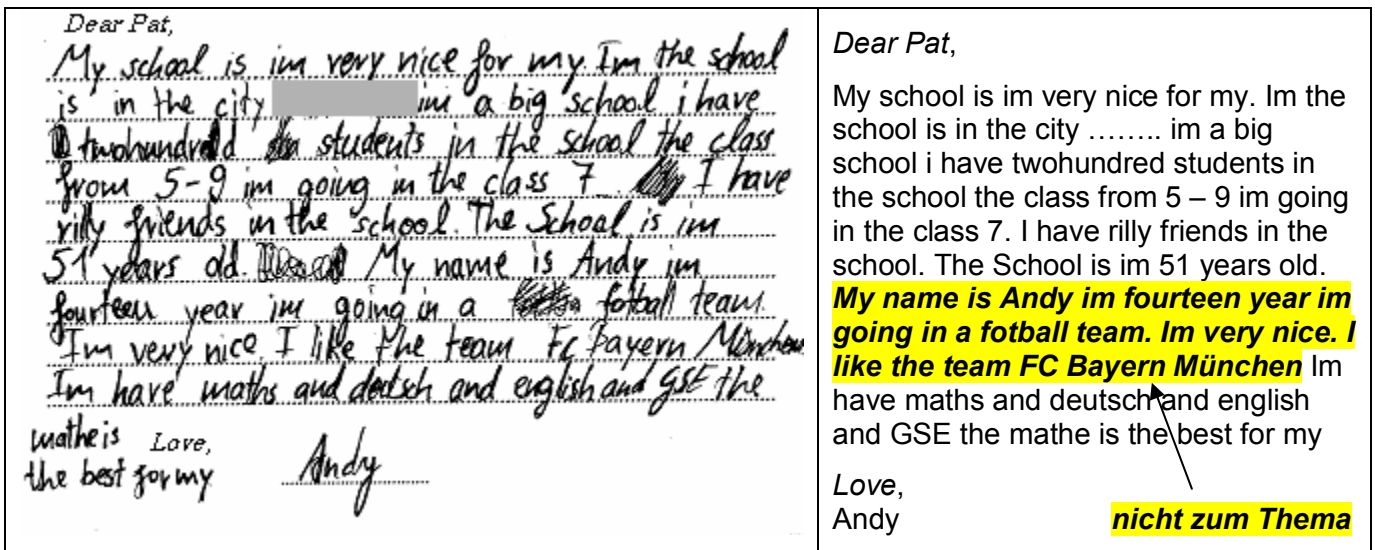 Dear Pat,
My school is im very nice for my. Im the school
is in the city im a big school i have
twohundred students in the school the class
from 5-9 im going in the class 7 I have
rilly friends in the school. The School is im
51 years old. My name is Andy im
fourteen year im going in a fotball team.
Im very nice. I like the team Fc Bayern München
Im have maths and deutsch and english and GSE the
mathe is Love,
the best for my Andy
Dear Pat,
My school is im very nice for my. Im the
school is in the city …….. im a big
school i have twohundred students in
the school the class from 5 – 9 im going
in the class 7. I have rilly friends in the
school. The School is im 51 years old.
My name is Andy im fourteen year im
going in a fotball team. Im very nice. I
like the team FC Bayern München Im
have maths and deutsch and english
and GSE the mathe is the best for my
Love,
Andy nicht zum Thema